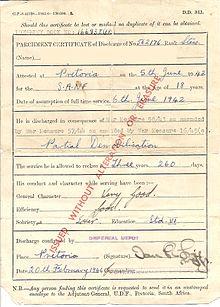 D.D. 312.
Should this certificate be lost or mislaid no duplicate of it can be obtained.
CERTIFICATE of Discharge of No.
Attested at Pretoria on the 5th June 1942
for the at the age of 18 years.
Date of assumption of full time service 6th June 1942
He is discharged in consequence of War Measure as amended by
War Measure as amended by War Measure
Partial Demobilisation
The service he is allowed to reckon is Three years 260 days.
His conduct and character while serving have been:—
General Character Very Good.
Efficiency Good
Sobriety Education Std. VI
ISSUED WITHOUT ALTERATION OR ERASURE
Discharge confirmed by DISPERSAL DEPOT
Place Pretoria (Signature)
Date 20th February 1946
N.B.—Any person finding this certificate is requested to send it in an unstamped envelope
to the Adjutant-General, U.D.F., Pretoria, South Africa.